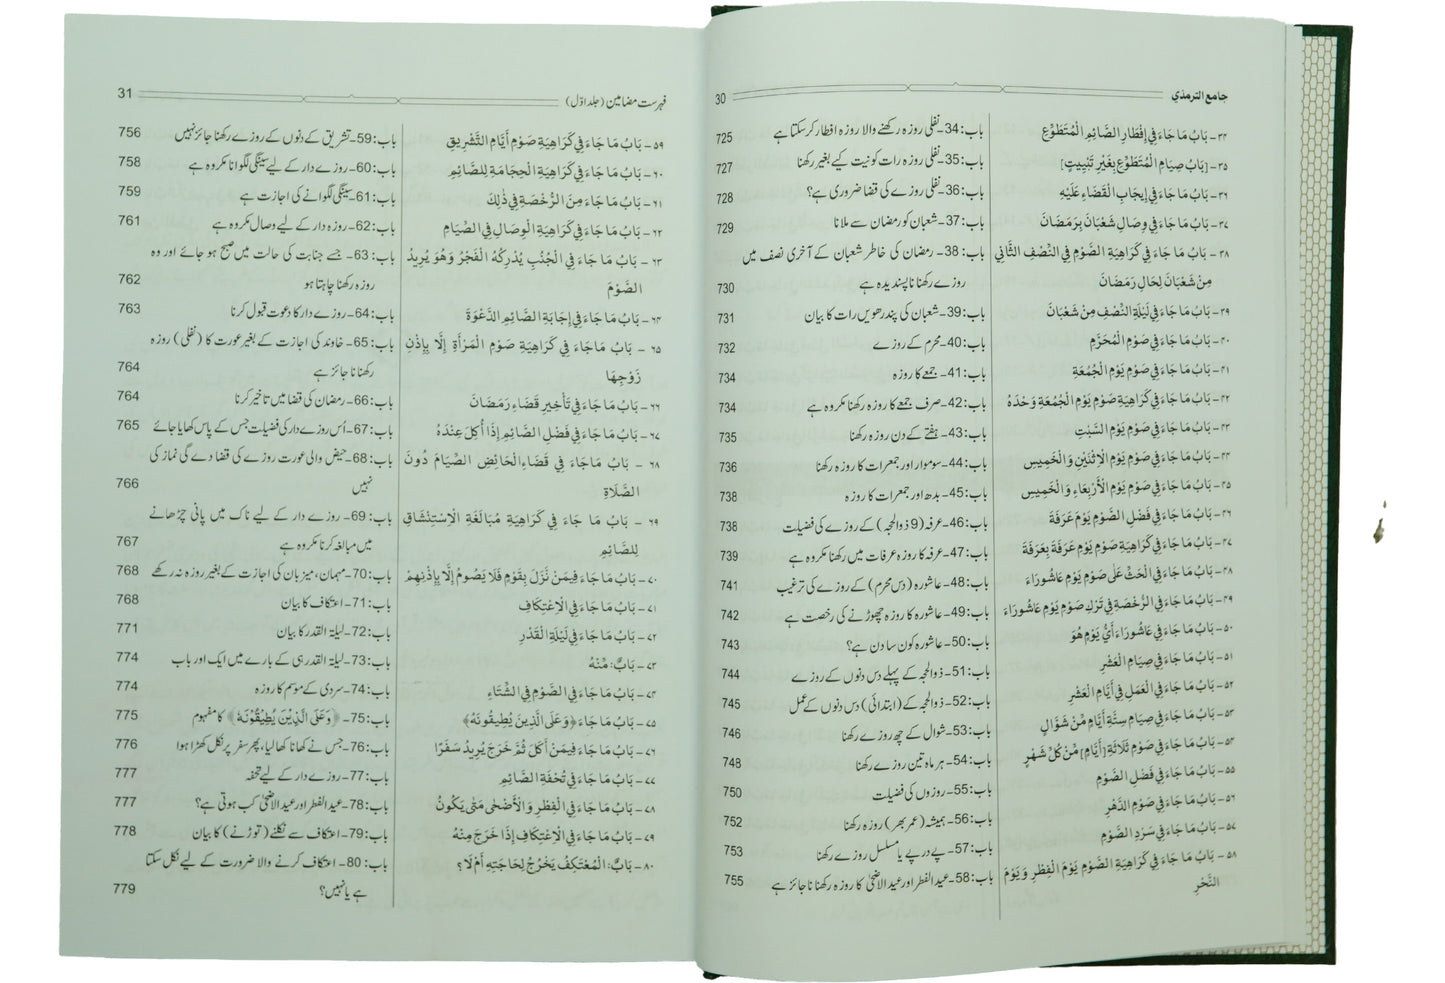 جامع الترمذي
30
۳۴ - بَابُ مَا جَاءَ فِي إِفْطَارِ الصَّائِمِ الْمُتَطَوِّعِ
باب: 34- نفلی روزہ رکھنے والا روزہ افطار کر سکتا ہے 725
۳۵ - [بَابُ صِيَامِ الْمُتَطَوِّعِ بِغَيْرِ تَبْيِيتٍ]
باب: 35- نفلی روزہ رات کو نیت کیے بغیر رکھنا 727
۳۶ - بَابُ مَا جَاءَ فِي إِيجَابِ الْقَضَاءِ عَلَيْهِ
باب: 36- نفلی روزے کی قضا ضروری ہے؟ 728
۳۷ - بَابُ مَا جَاءَ فِي وِصَالِ شَعْبَانَ بِرَمَضَانَ
باب: 37- شعبان کو رمضان سے ملانا 729
۳۸ - بَابُ مَا جَاءَ فِي كَرَاهِيَةِ الصَّوْمِ فِي النِّصْفِ الثَّانِي
مِنْ شَعْبَانَ لِحَالِ رَمَضَانَ
باب: 38- رمضان کی خاطر شعبان کے آخری نصف میں
روزے رکھنا ناپسندیدہ ہے 730
۳۹ - بَابُ مَا جَاءَ فِي لَيْلَةِ النِّصْفِ مِنْ شَعْبَانَ
باب: 39- شعبان کی پندرھویں رات کا بیان 731
۴۰ - بَابُ مَا جَاءَ فِي صَوْمِ الْمُحَرَّمِ
باب: 40- محرم کے روزے 732
۴۱ - بَابُ مَا جَاءَ فِي صَوْمِ يَوْمِ الْجُمُعَةِ
باب: 41- جمعے کا روزہ 734
۴۲ - بَابُ مَا جَاءَ فِي كَرَاهِيَةِ صَوْمِ يَوْمِ الْجُمُعَةِ وَحْدَهُ
باب: 42- صرف جمعے کا روزہ رکھنا مکروہ ہے 734
۴۳ - بَابُ مَا جَاءَ فِي صَوْمِ يَوْمِ السَّبْتِ
باب: 43- ہفتے کے دن روزہ رکھنا 735
۴۴ - بَابُ مَا جَاءَ فِي صَوْمِ يَوْمِ الِاثْنَيْنِ وَالْخَمِيسِ
باب: 44- سوموار اور جمعرات کا روزہ رکھنا 736
۴۵ - بَابُ مَا جَاءَ فِي صَوْمِ يَوْمِ الْأَرْبِعَاءِ وَالْخَمِيسِ
باب: 45- بدھ اور جمعرات کا روزہ 738
۴۶ - بَابُ مَا جَاءَ فِي فَضْلِ الصَّوْمِ يَوْمَ عَرَفَةَ
باب: 46- عرفہ (9 ذوالحجہ) کے روزے کی فضیلت 738
۴۷ - بَابُ مَا جَاءَ فِي كَرَاهِيَةِ صَوْمِ يَوْمِ عَرَفَةَ بِعَرَفَةَ
باب: 47- عرفہ کا روزہ عرفات میں رکھنا مکروہ ہے 739
۴۸ - بَابُ مَا جَاءَ فِي الْحَثِّ عَلَى صَوْمِ يَوْمِ عَاشُورَاءَ
باب: 48- عاشورہ (دس محرم) کے روزے کی ترغیب 741
۴۹ - بَابُ مَا جَاءَ فِي الرُّخْصَةِ فِي تَرْكِ صَوْمِ يَوْمِ عَاشُورَاءَ
باب: 49- عاشورہ کا روزہ چھوڑنے کی رخصت ہے 742
۵۰ - بَابُ مَا جَاءَ فِي عَاشُورَاءَ أَيُّ يَوْمٍ هُوَ
باب: 50- عاشورہ کون سا دن ہے؟ 743
۵۱ - بَابُ مَا جَاءَ فِي صِيَامِ الْعَشْرِ
باب: 51- ذوالحجہ کے پہلے دس دنوں کے روزے 744
۵۲ - بَابُ مَا جَاءَ فِي الْعَمَلِ فِي أَيَّامِ الْعَشْرِ
باب: 52- ذوالحجہ کے (ابتدائی) دس دنوں کے عمل 745
۵۳ - بَابُ مَا جَاءَ فِي صِيَامِ سِتَّةِ أَيَّامٍ مِّنْ شَوَّالٍ
باب: 53- شوال کے چھ روزے رکھنا 746
۵۴ - بَابُ مَا جَاءَ فِي صَوْمِ ثَلَاثَةِ [أَيَّامٍ] مِّنْ كُلِّ شَهْرٍ
باب: 54- ہر ماہ تین روزے رکھنا 748
۵۵ - بَابُ مَا جَاءَ فِي فَضْلِ الصَّوْمِ
باب: 55- روزوں کی فضیلت 750
۵۶ - بَابُ مَا جَاءَ فِي صَوْمِ الدَّهْرِ
باب: 56- ہمیشہ (عمر بھر) روزہ رکھنا 752
۵۷ - بَابُ مَا جَاءَ فِي سَرْدِ الصَّوْمِ
باب: 57- پے در پے یا مسلسل روزے رکھنا 753
۵۸ - بَابُ مَا جَاءَ فِي كَرَاهِيَةِ الصَّوْمِ يَوْمَ الْفِطْرِ وَيَوْمَ
النَّحْرِ
باب: 58- عیدالفطر اور عیدالاضحیٰ کا روزہ رکھنا ناجائز ہے 755
فہرست مضامین (جلد اوّل)
31
۵۹ - بَابُ مَا جَاءَ فِي كَرَاهِيَةِ صَوْمِ أَيَّامِ التَّشْرِيقِ
باب: 59- تشریق کے دنوں کے روزے رکھنا جائز نہیں 756
۶۰ - بَابُ مَا جَاءَ فِي كَرَاهِيَةِ الْحِجَامَةِ لِلصَّائِمِ
باب: 60- روزے دار کے لیے سینگی لگوانا مکروہ ہے 758
۶۱ - بَابُ مَا جَاءَ مِنَ الرُّخْصَةِ فِي ذٰلِكَ
باب: 61- سینگی لگوانے کی اجازت ہے 759
۶۲ - بَابُ مَا جَاءَ فِي كَرَاهِيَةِ الْوِصَالِ فِي الصِّيَامِ
باب: 62- روزہ دار کے لیے وصال مکروہ ہے 761
۶۳ - بَابُ مَا جَاءَ فِي الْجُنُبِ يُدْرِكُهُ الْفَجْرُ وَهُوَ يُرِيدُ
الصَّوْمَ
باب: 63- جسے جنابت کی حالت میں صبح ہو جائے اور وہ
روزہ رکھنا چاہتا ہو 762
۶۴ - بَابُ مَا جَاءَ فِي إِجَابَةِ الصَّائِمِ الدَّعْوَةَ
باب: 64- روزے دار کا دعوت قبول کرنا 763
۶۵ - بَابُ مَا جَاءَ فِي كَرَاهِيَةِ صَوْمِ الْمَرْأَةِ إِلَّا بِإِذْنِ
زَوْجِهَا
باب: 65- خاوند کی اجازت کے بغیر عورت کا (نفلی) روزہ
رکھنا ناجائز ہے 764
۶۶ - بَابُ مَا جَاءَ فِي تَأْخِيرِ قَضَاءِ رَمَضَانَ
باب: 66- رمضان کی قضا میں تاخیر کرنا 764
۶۷ - بَابُ مَا جَاءَ فِي فَضْلِ الصَّائِمِ إِذَا أُكِلَ عِنْدَهُ
باب: 67- اُس روزے دار کی فضیلت جس کے پاس کھایا جائے 765
۶۸ - بَابُ مَا جَاءَ فِي قَضَاءِ الْحَائِضِ الصِّيَامَ دُونَ
الصَّلَاةِ
باب: 68- حیض والی عورت روزے کی قضا دے گی نماز کی
نہیں 766
۶۹ - بَابُ مَا جَاءَ فِي كَرَاهِيَةِ مُبَالَغَةِ الِاسْتِنْشَاقِ
لِلصَّائِمِ
باب: 69- روزے دار کے لیے ناک میں پانی چڑھانے
میں مبالغہ کرنا مکروہ ہے 767
۷۰ - بَابُ مَا جَاءَ فِيمَنْ نَزَلَ بِقَوْمٍ فَلَا يَصُومُ إِلَّا بِإِذْنِهِمْ
باب: 70- مہمان، میزبان کی اجازت کے بغیر روزہ نہ رکھے 768
۷۱ - بَابُ مَا جَاءَ فِي الِاعْتِكَافِ
باب: 71- اعتکاف کا بیان 768
۷۲ - بَابُ مَا جَاءَ فِي لَيْلَةِ الْقَدْرِ
باب: 72- لیلۃ القدر کا بیان 771
۷۳ - بَابٌ: مِّنْهُ
باب: 73- لیلۃ القدر ہی کے بارے میں ایک اور باب 774
۷۴ - بَابُ مَا جَاءَ فِي الصَّوْمِ فِي الشِّتَاءِ
باب: 74- سردی کے موسم کا روزہ 774
۷۵ - بَابُ مَا جَاءَ ﴿وَعَلَى الَّذِينَ يُطِيقُونَهُ﴾
باب: 75- ﴿وَعَلَى الَّذِيْنَ يُطِيْقُوْنَهٗ﴾ کا مفہوم 775
۷۶ - بَابُ مَا جَاءَ فِيمَنْ أَكَلَ ثُمَّ خَرَجَ يُرِيدُ سَفَرًا
باب: 76- جس نے کھانا کھا لیا، پھر سفر پر نکل کھڑا ہوا 776
۷۷ - بَابُ مَا جَاءَ فِي تُحْفَةِ الصَّائِمِ
باب: 77- روزے دار کے لیے تحفہ 777
۷۸ - بَابُ مَا جَاءَ فِي الْفِطْرِ وَالْأَضْحٰى مَتٰى يَكُونُ
باب: 78- عیدالفطر اور عیدالاضحیٰ کب ہوتی ہے؟ 777
۷۹ - بَابُ مَا جَاءَ فِي الِاعْتِكَافِ إِذَا خَرَجَ مِنْهُ
باب: 79- اعتکاف سے نکلنے (توڑنے) کا بیان 778
۸۰ - بَابٌ: الْمُعْتَكِفُ يَخْرُجُ لِحَاجَتِهِ أَمْ لَا؟
باب: 80- اعتکاف کرنے والا ضرورت کے لیے نکل سکتا
ہے یا نہیں؟ 779